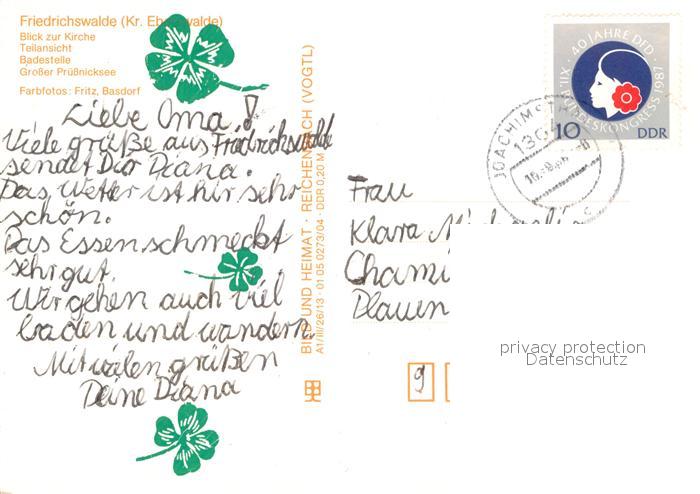 Friedrichswalde (Kr. Eberswalde)
Blick zur Kirche
Teilansicht
Badestelle
Großer Prüßnicksee
Farbfotos: Fritz, Basdorf
Liebe Oma!
Viele grüße aus Fridrichswalde
sendet Dir Diana.
Das Wetter ist hir sehr
schön.
Das Essen schmeckt
sehr gut.
Wir gehen auch viel
baden und wandern.
Mit vielen grüßen
Deine Diana
BILD UND HEIMAT · REICHENBACH (VOGTL)
A1/III/26/13 · 01 05 0273/04 · DDR 0,20 M
40 JAHRE DFD
XII.
BUNDESKONGRESS 1987
10 DDR
JOACHIMSTHAL
Frau
Klara
Plauen
9
privacy protection
Datenschutz